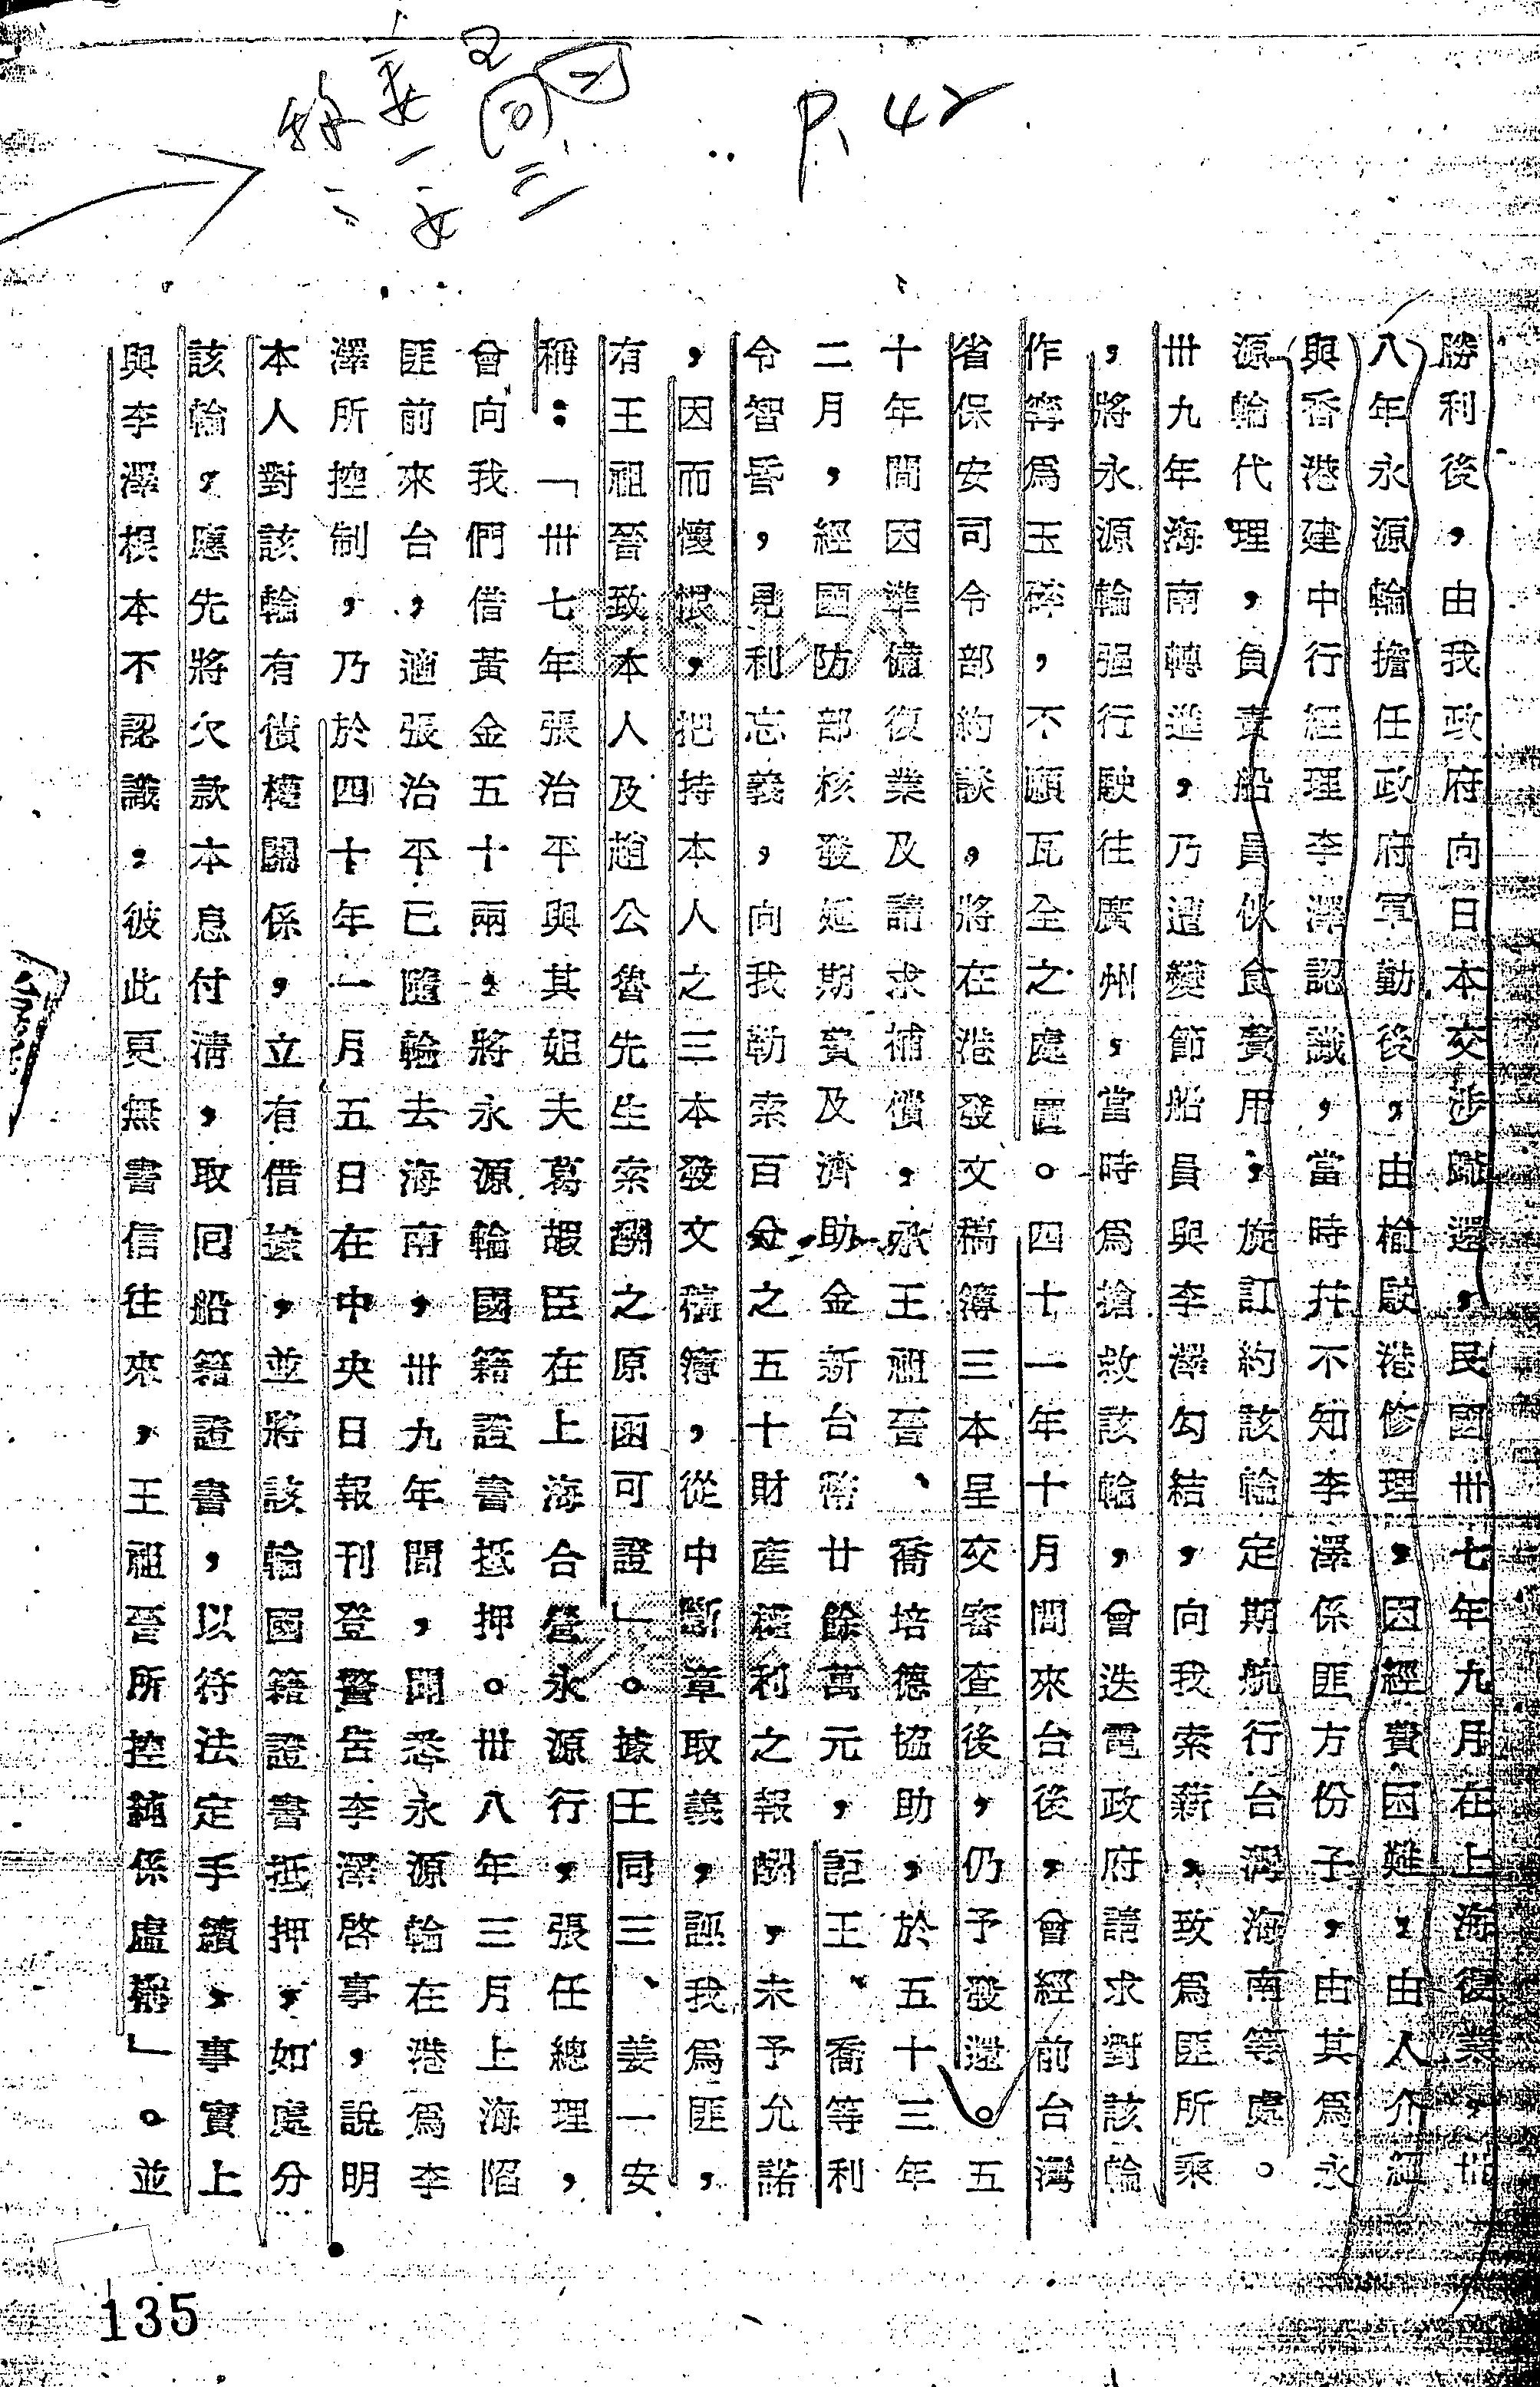 P. 42
勝利後，由我政府向日本交涉歸還，民國卅七年九月在上海復業，卅
八年永源輪擔任政府軍勤後，由榆駛港修理，因經費困難，由人介紹
與香港建中行經理李澤認識，當時并不知李澤係匪方份子，由其為永
源輪代理，負責船員伙食費用，旋訂約該輪定期航行台灣海南等處。
卅九年海南轉進，乃遭變節船員與李澤勾結，向我索薪，致為匪所乘
，將永源輪强行駛往廣州，當時為搶救該輪，曾迭電政府請求對該輪
作寗為玉碎，不願瓦全之處置。四十一年十月間來台後，曾經前台灣
省保安司令部約談，將在港發文稿簿三本呈交審查後，仍予發還。五
十年間因準備復業及請求補償，承王祖晉、喬培德協助，於五十三年
二月，經國防部核發延期費及濟助金新台幣廿餘萬元，詎王、喬等利
令智昏，見利忘義，向我勒索百分之五十財產權利之報酬，未予允諾
，因而懷恨，把持本人之三本發文稿簿，從中斷章取義，誣我為匪，
有王祖晉致本人及趙公魯先生索酬之原函可證」。據王同三、姜一安
稱：「卅七年張治平與其姐夫葛嘏臣在上海合營永源行，張任總理，
曾向我們借黃金五十兩，將永源輪國籍證書抵押。卅八年三月上海陷
匪前來台，適張治平已隨輪去海南，卅九年間，聞悉永源輪在港為李
澤所控制，乃於四十年一月五日在中央日報刊登警告李澤啓事，說明
本人對該輪有債權關係，立有借據，並將該輪國籍證書抵押，如處分
該輪，應先將欠款本息付清，取回船籍證書，以符法定手續，事實上
與李澤根本不認識，彼此更無書信往來，王祖晉所控純係虛構」。並
135